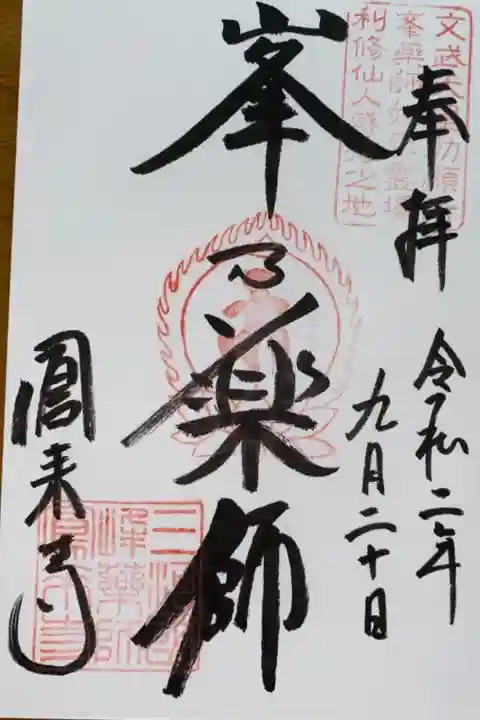 奉拝
令和二年
九月二十日
峯乃薬師
鳳来寺
文武天
勅願
峯薬師如
霊場
利修仙人
之地
三河国
峰薬師
鳳来寺